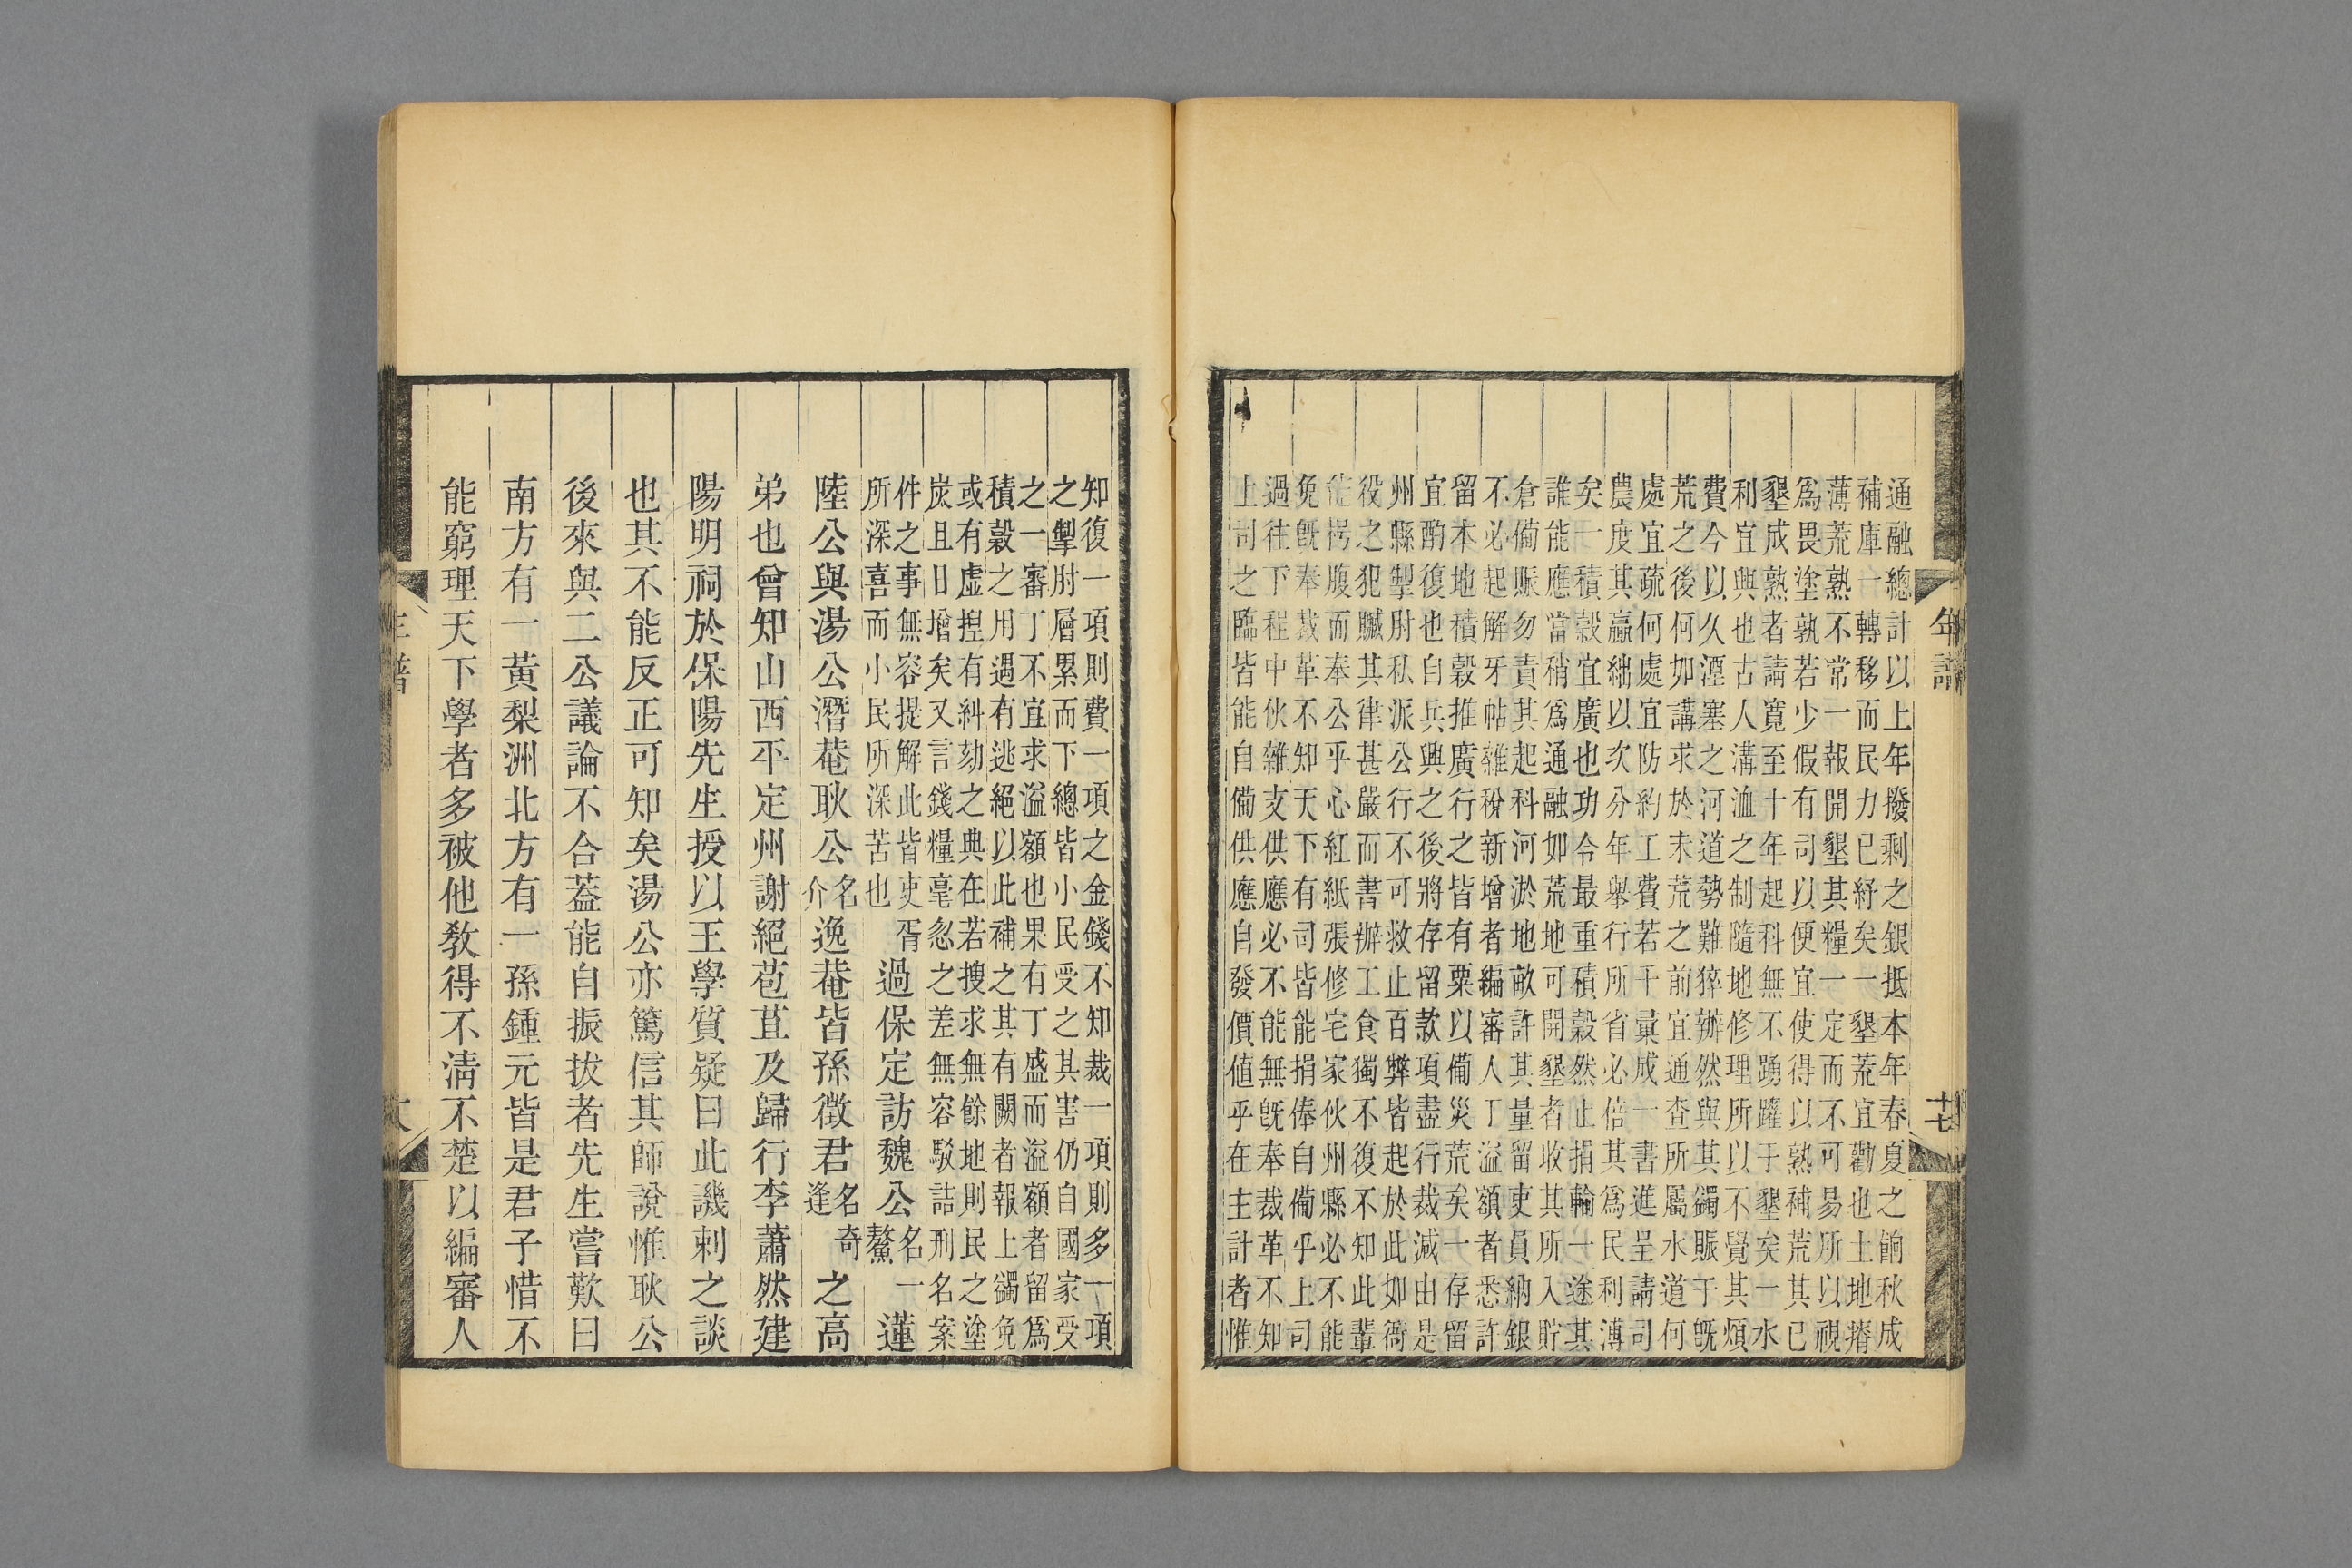 年譜
十七
通融總計以上年撥剩之銀抵本年春夏之餉秋成
補庫一轉移而民力已紓矣一墾荒宜勸也土地瘠
薄荒熟不常一報開墾其糧一定而不可易所以視
爲畏塗孰若少假有司以便宜使得以熟補荒其已
墾成熟者請寬至十年起科無不踴躍于墾矣一水
利宜興也古人溝洫之制隨地修理所以不覺其煩
費今以久湮塞之河道勢難猝辦然與其蠲賑于旣
荒之後何如講求於未荒之前宜通查所屬水道何
處宜疏何處宜防約工費若干彙成一書進呈請司
農度其贏絀以次分年舉行所省必倍其爲民利溥
矣一積穀宜廣也功令最重積穀然止捐輸一途其
誰能應當稍爲通融如荒地可開墾者收其所入貯
倉備賑勿責其起科河淤地畝許其量留吏員納銀
不必起解牙帖雜稅新增者編審人丁溢額者悉許
留本地積穀推廣行之皆有粟以備災荒矣一存留
宜酌復也自兵興之後將存留款項盡行裁減由是
州縣掣肘私派公行不可救止百弊皆起於此如衙
役之犯贓其律甚嚴而書辦工食獨不復不知此輩
能枵腹而奉公乎心紅紙張修宅家伙州縣必不能
免旣奉裁革不知天下有司皆能捐俸自備乎上司
過往下程中伙雜支供應必不能無旣奉裁革不知
上司之臨皆能自備供應自發價値乎在主計者惟
知復一項則費一項之金錢不知裁一項則多一項
之掣肘層累而下總皆小民受之其害仍自國家受
之一審丁不宜求溢額也果有丁盛而溢額者留爲
積穀之用遇有逃絕以此補之其有闕者報上蠲免
或有虛捏有糾劾之典在若搜求無餘地則民之塗
炭且日增矣又言錢糧毫忽之差無容駁詰刑名案
件之事無容提解此皆吏胥
所深喜而小民所深苦也
過保定訪魏公名一鰲蓮
陸公與湯公潛菴耿公名介逸菴皆孫徵君名奇逢之高
弟也曾知山西平定州謝絕苞苴及歸行李蕭然建
陽明祠於保陽先生授以王學質疑曰此譏刺之談
也其不能反正可知矣湯公亦篤信其師說惟耿公
後來與二公議論不合蓋能自振拔者先生嘗歎曰
南方有一黃梨洲北方有一孫鍾元皆是君子惜不
能窮理天下學者多被他教得不清不楚以編審人